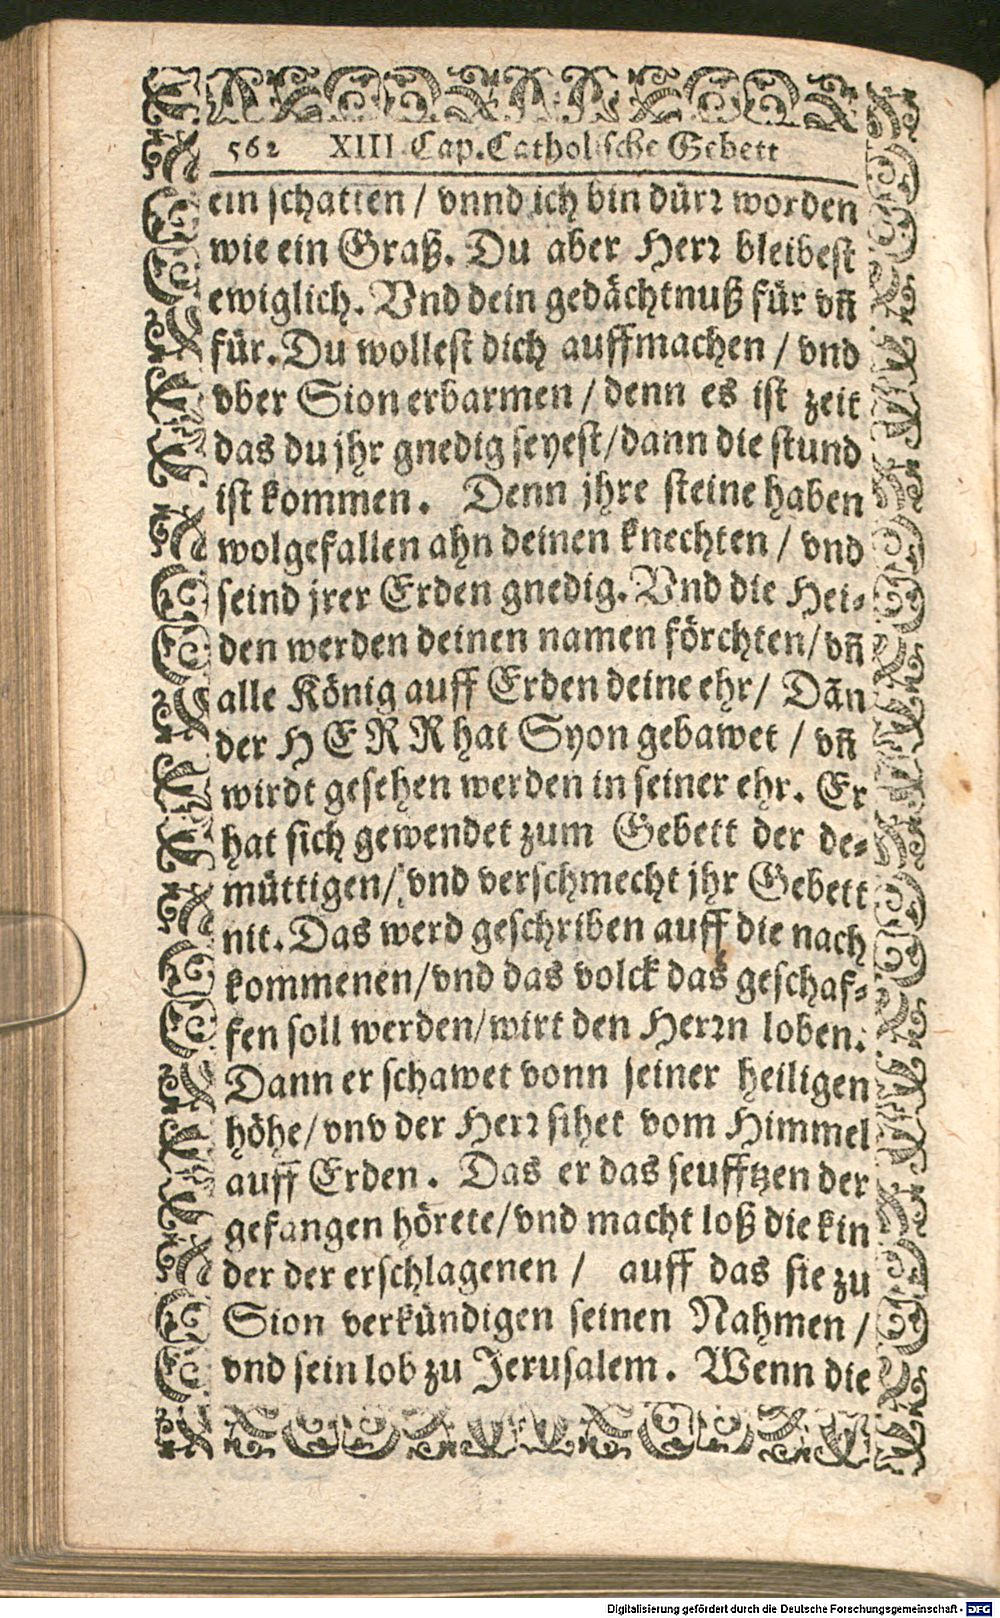 562 XIII Cap. Catholische Gebett
ein schatten / vnnd ich bin dürꝛ worden
wie ein Graß. Du aber Herꝛ bleibest
ewiglich. Vnd dein gedächtnuß für vñ
für. Du wollest dich auffmachen / vnd
vber Sion erbarmen / denn es ist zeit
das du jhr gnedig seyest/dann die stund
ist kommen. Denn jhre steine haben
wolgefallen ahn deinen knechten / vnd
seind jrer Erden gnedig. Vnd die Hei⸗
den werden deinen namen förchten/ vñ
alle König auff Erden deine ehr/ Dãn
der HERR hat Syon gebawet / vñ
wirdt gesehen werden in seiner ehr. Er
hat sich gewendet zum Gebett der de⸗
müttigen/ vnd verschmecht jhr Gebett
nit. Das werd geschriben auff die nach
kommenen/vnd das volck das geschaf⸗
fen soll werden/wirt den Herꝛn loben:
Dann er schawet vonn seiner heiligen
höhe/ vnd der Herꝛ sihet vom Himmel
auff Erden. Das er das seufftzen der
gefangen hörete/vnd macht loß die kin
der der erschlagenen / auff das sie zu
Sion verkündigen seinen Nahmen /
vnd sein lob zu Jerusalem. Wenn die
Digitalisierung gefördert durch die Deutsche Forschungsgemeinschaft - DFG